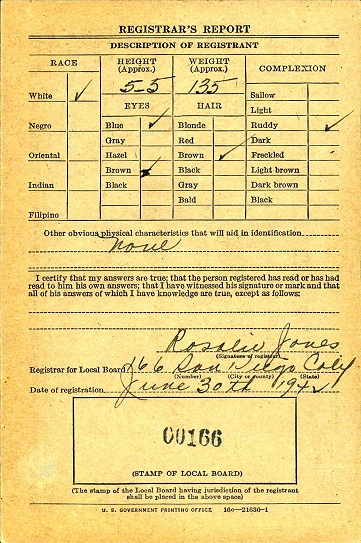 REGISTRAR'S REPORT
DESCRIPTION OF REGISTRANT
RACE
HEIGHT (Approx.)
WEIGHT (Approx.)
COMPLEXION
5-5
135
White ✓
Negro
Oriental
Indian
Filipino
EYES
Blue ✓
Gray
Hazel
Brown ✓
Black
HAIR
Blonde
Red
Brown ✓
Black
Gray
Bald
Sallow
Light
Ruddy ✓
Dark
Freckled
Light brown
Dark brown
Black
Other obvious physical characteristics that will aid in identification
None
I certify that my answers are true; that the person registered has read or has had
read to him his own answers; that I have witnessed his signature or mark and that
all of his answers of which I have knowledge are true, except as follows:
Rosalie Jones
(Signature of registrar)
Registrar for Local Board 166 San Diego Calif
(Number) (City or county) (State)
Date of registration June 30th 1942
00166
(STAMP OF LOCAL BOARD)
(The stamp of the Local Board having jurisdiction of the registrant
shall be placed in the above space)
U. S. GOVERNMENT PRINTING OFFICE 16—21630-1